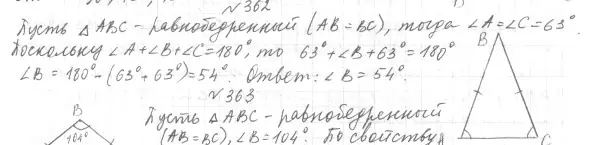 №362
Пусть △ABC - равнобедренный (AB=BC), тогда ∠A=∠C=63°.
Поскольку ∠A+∠B+∠C=180°, то 63°+∠B+63°=180°
∠B = 180°-(63°+63°)=54°. Ответ: ∠B = 54°.
B
C
№363
B
104°
Пусть △ABC - равнобедренный
(AB=BC), ∠B=104°. По свойству